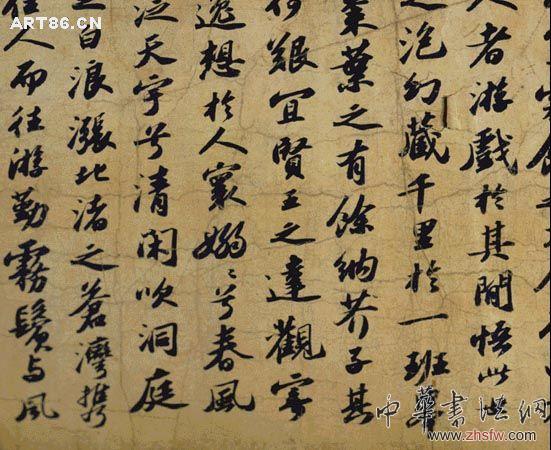 人者游戲於其間悟此世
之泡幻藏千里於一班舉
棗葉之有餘納芥子其
何艱宜賢王之達觀寄
逸想於人寰嫋〻兮春風
泛天宇兮清閑吹洞庭
之白浪漲北渚之蒼灣攜
佳人而往游勤霧鬢与風
ART86.CN
中華書法網
www.zhsfw.com